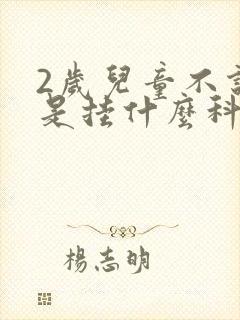 2歲兒童不
是挂什麼科
楊志明